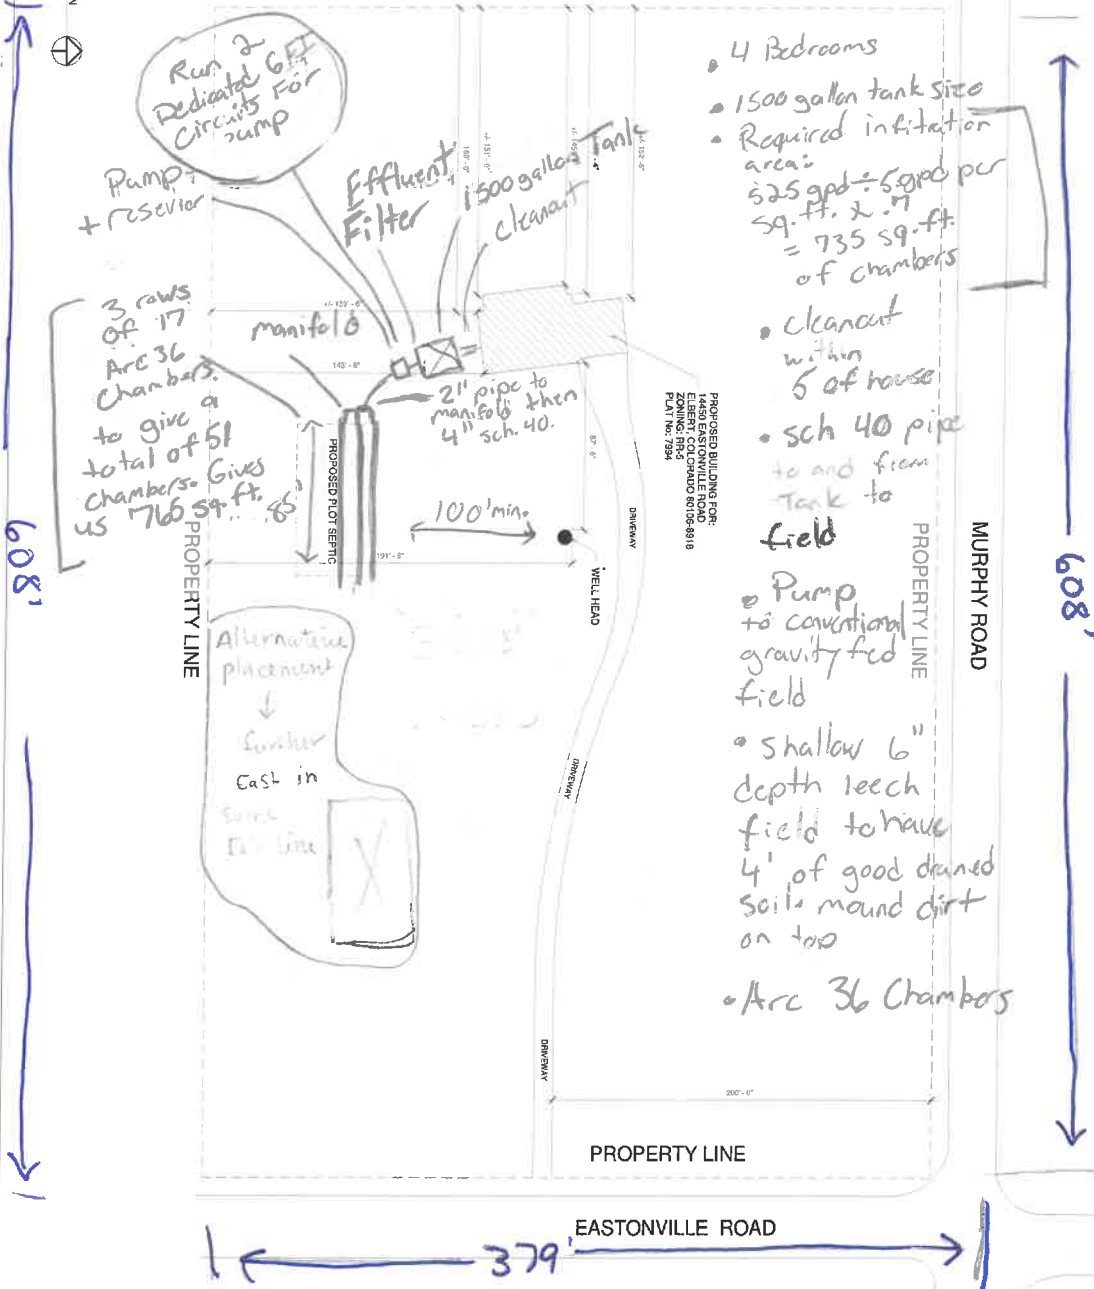 N
Run 2
Dedicated GFI
Circuits For
pump
Pump
+ resevier
Effluent
Filter
1500 gallon Tank
cleanout
3 rows
of 17
Arc 36
Chambers.
to give a
total of 51
chambers. Gives
us 765 sq. ft.
manifold
2" pipe to
manifold then
4" sch. 40.
+/- 139'-6"
143'-6"
PROPOSED PLOT SEPTIC
100' min.
191'-8"
WELL HEAD
PROPERTY LINE
Alternative
placement
↓
further
East in
608'
DRIVEWAY
DRIVEWAY
DRIVEWAY
PROPOSED BUILDING FOR:
14450 EASTONVILLE ROAD
ELBERT, COLORADO 80106-8918
ZONING: RR-5
PLAT No: 7994
• 4 Bedrooms
• 1500 gallon tank size
• Required infitration
area:
525 gpd ÷ .5 gpd per
sq. ft. x .7
= 735 sq. ft.
of chambers
• cleanout
within
5 of house
• sch 40 pipe
to and from
Tank to
field
• Pump
to conventional
gravity fed
field
• Shallow 6"
depth leech
field to have
4' of good drained
soil. mound dirt
on top
• Arc 36 Chambers
PROPERTY LINE
MURPHY ROAD
608'
200'-0"
PROPERTY LINE
EASTONVILLE ROAD
379'